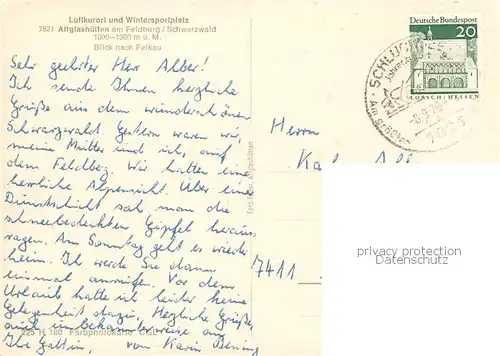 Luftkurort und Wintersportplatz
7821 Altglashütten am Feldberg / Schwarzwald
1000-1300 m ü. M.
Blick nach Falkau
Sehr geehrter Herr Alber!
Ich sende Ihnen herzliche
Grüße aus dem wunderschönen
Schwarzwald. Gestern waren wir,
meine Mutter und ich, auf
dem Feldberg. Wir hatten eine
herrliche Alpensicht. Über eine
Dunstschicht sah man die
schneebedeckten Gipfel heraus
ragen. Am Sonntag geht es wieder
heim. Ich werde Sie dann
einmal anrufen. Vor dem
Urlaub hatte ich leider keine
Gelegenheit dazu. Herzliche Grüße,
auch unbekannterweise an
Ihre Gattin, von Karin
225 H 180 Farbphotokarte
Deutsche Bundespost
20
LORSCH · HESSEN
SCHLUCHSEE
Herrn
Karl
7411
privacy protection